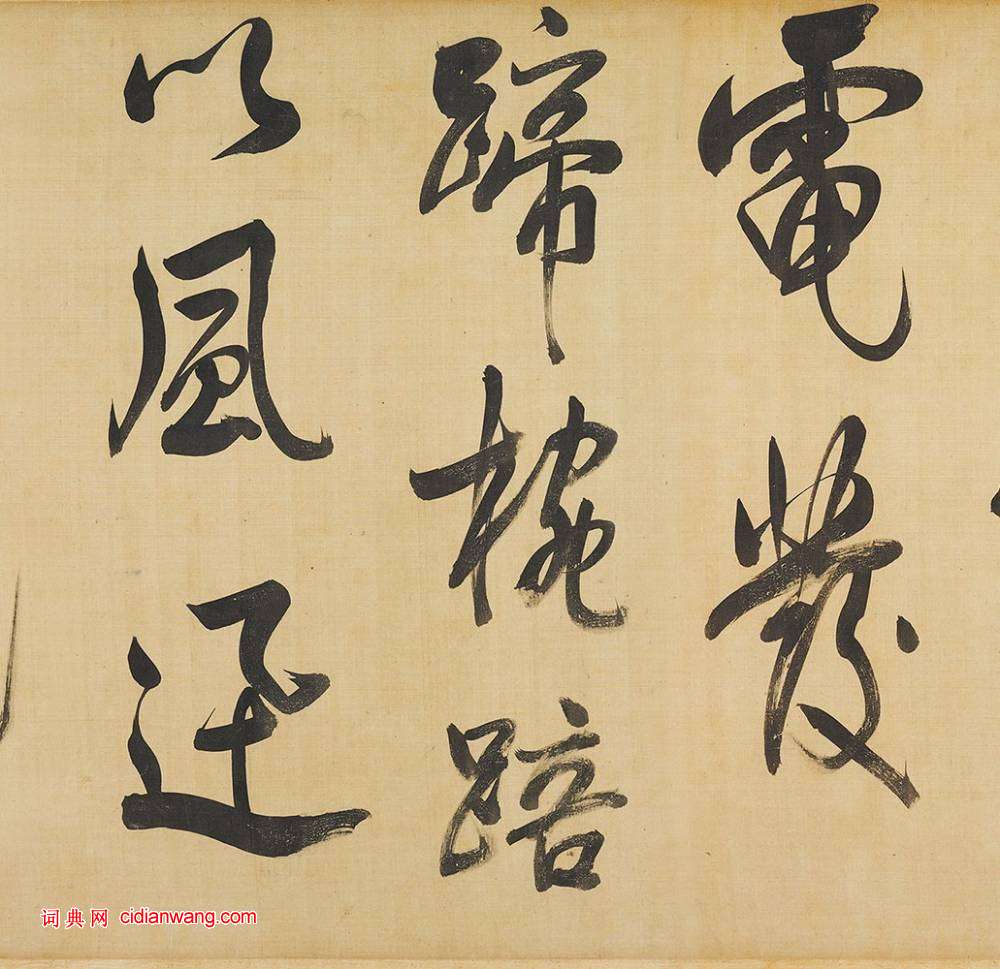 電發
蹄椀踣
以風迅
词典网 cidianwang.com